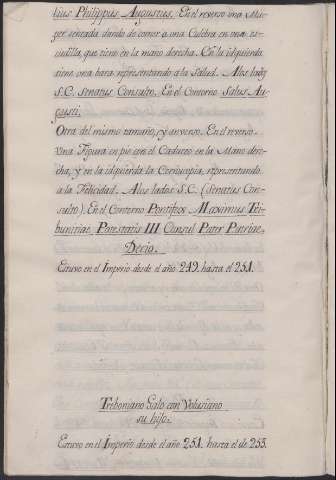 lius Philippus Augustus. En el reverso una Mu-
ger sentada dando de comer a una Culebra en una es-
cudilla, que tiene en la mano derecha. En la izquierda
tiene una bara representando a la Salud. A los lados
S.C. Senatus Consulto. En el Contorno Salus Au-
gusti.
Otra del mismo tamaño, y anverso. En el reverso
una Figura en pie con el Caduceo en la Mano dere-
cha, y en la izquierda la Cornucopia, representando
a la Felicidad. A los lados S.C. (Senatus Con-
sulto). En el Contorno Pontifex Maximus Tri-
bunitiae, Potestatis III Consul Pater Patriae.
Decio.
Estuvo en el Imperio desde el año 249. hasta el 251.
Treboniano Galo con Volusiano
su hijo.
Estuvo en el Imperio desde el año 251. hasta el de 253.